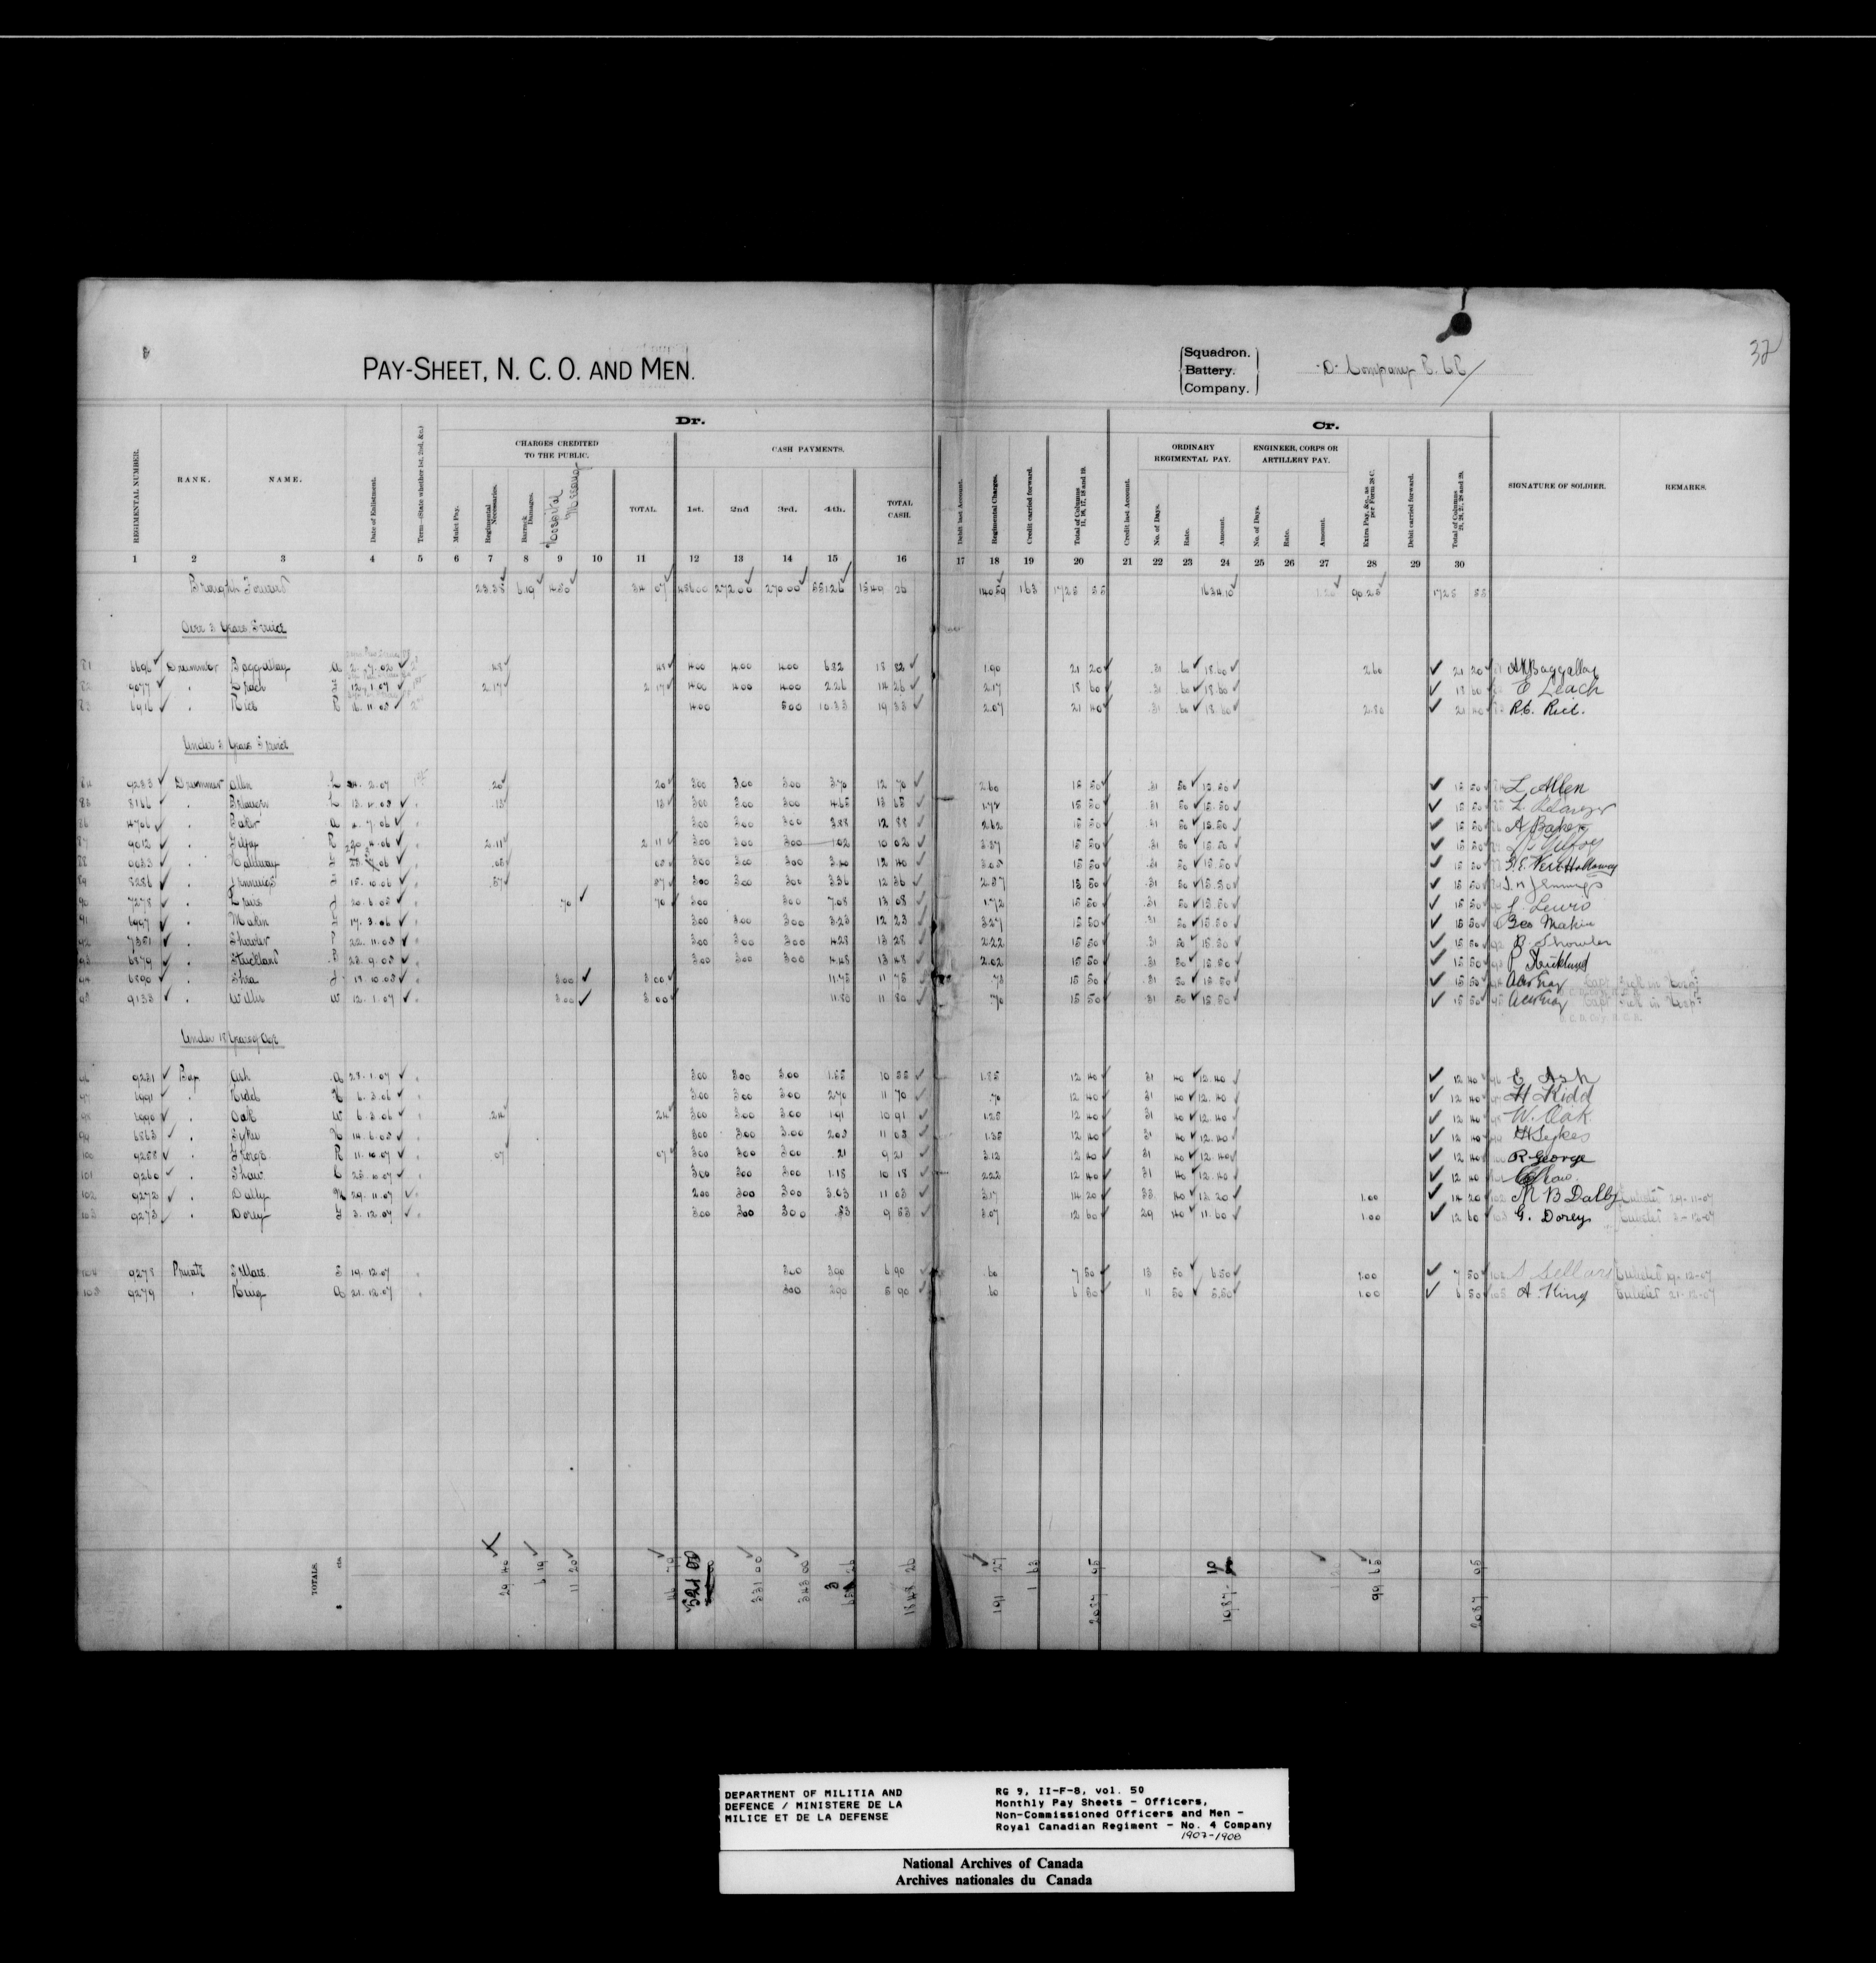 32
PAY-SHEET, N. C. O. AND MEN.
Squadron.
Battery.
Company.
D. Company R.C.R.
Dr.
Cr.
CHARGES CREDITED TO THE PUBLIC.
CASH PAYMENTS.
ORDINARY REGIMENTAL PAY.
ENGINEER, CORPS OR ARTILLERY PAY.
REGIMENTAL NUMBER. RANK. NAME. Date of Enlistment. Term—(State whether 1st, 2nd, &c.) Mulct Pay. Regimental Necessaries. Barrack Damages. Hospital Messing TOTAL. 1st. 2nd 3rd. 4th. TOTAL CASH. Debit last Account. Regimental Charges. Credit carried forward. Total of Columns 11, 16, 17, 18 and 19. Credit last Account. No. of Days. Rate. Amount. No. of Days. Rate. Amount. Extra Pay, &c., as per Form 28 C. Debit carried forward. Total of Columns 21, 24, 27, 28 and 29. SIGNATURE OF SOLDIER. REMARKS.
1 2 3 4 5 6 7 8 9 10 11 12 13 14 15 16 17 18 19 20 21 22 23 24 25 26 27 28 29 30
Brought Forward 6.19 4.50 34 07 272.00 270.00 551.26 1549 26 140 59 1 63 1725 55 1634.10 90.25 1725 55
Over 3 Years Service
81 6696 Drummer Baggallay A 2.7.02 .48 .48 4.00 4.00 4.00 6.82 18 82 1.90 21 20 31 .60 18.60 2.60 21 20 A Baggallay
82 9077 " Leach E 12.1.07 2.17 2.17 4.00 4.00 4.00 2.26 14 26 2.17 18 60 31 .60 18.60 18 60 E Leach
83 6916 " Rice R 16.11.03 4.00 5.00 10.33 19 33 2.07 21 40 31 .60 18.60 2.80 21 40 R.C. Rice.
Under 3 Years Service
84 9233 Drummer Allen L 2.07 .20 .20 3.00 3.00 3.00 3.70 12 70 2.60 15 50 31 50 15.50 15 50 L Allen
85 8166 " L 3.00 3.00 3.00 4.65 13 65 15 50 31 50 15.50 15 50
86 4706 " Baker A 4.7.06 3.00 3.00 3.00 3.88 12 88 2.62 15 50 31 50 15.50 15 50 A Baker
87 9012 " R 2.11 2 11 3.00 3.00 3.00 1.02 10 02 3.37 15 50 31 50 15.50 15 50
88 " Holloway 3.00 3.00 3.00 3.40 12 40 3.05 15 50 31 50 15.50 15 50 G.E. Vere Holloway
89 8286 " Jennings J 15.10.06 .57 57 3.00 3.00 3.00 3.36 12 36 2.57 15 50 31 50 15.50 15 50 J.H Jennings
90 7278 " Lewis J 20.6.05 .70 70 3.00 3.00 7.08 13 08 1.72 15 50 31 50 15.50 15 50 J. Lewis
91 6997 " Makin G 17.3.06 3.00 3.00 3.00 3.23 12 23 3.27 15 50 31 50 15.50 15 50 Geo Makin
92 7351 " Showler P 22.11.05 3.00 3.00 3.00 4.28 13 28 2.22 15 50 31 50 15.50 15 50 P. Showler
93 6879 " Strickland P 25.9.05 3.00 3.00 3.00 4.48 13 48 2.02 15 50 31 50 15.50 15 50 P Strickland
94 6890 " Shea J 10.05 3.00 3 00 11.75 11 75 .75 15 50 31 50 15.50 15 50 Capt Sick in Hosp
95 9133 " Willis W 12.1.07 3.00 3 00 11.80 11 80 .70 15 50 31 50 15.50 15 50 Capt Sick in Hosp
Under 18 Years of Age
96 9231 Boy Ash A 28.1.07 3.00 3.00 3.00 1.55 10 55 1.85 12 40 31 40 12.40 12 40 E Ash
97 6991 " Kidd H 6.3.06 3.00 3.00 3.00 2.70 11 70 .70 12 40 31 40 12.40 12 40 H Kidd
98 6990 " Oak W 6.3.06 .24 24 3.00 3.00 3.00 1.91 10 91 1.25 12 40 31 40 12.40 12 40 W. Oak
99 6863 " Sykes H 14.6.05 3.00 3.00 3.00 2.05 11 05 1.35 12 40 31 40 12.40 12 40 H Sykes
100 9258 " George R 11.10.07 .07 07 3.00 3.00 3.00 .21 9 21 3.12 12 40 31 40 12.40 12 40 R George
101 9260 " Shaw C 25.10.07 3.00 3.00 3.00 1.18 10 18 2.22 12 40 31 40 12.40 12 40 C Shaw
102 9272 " Dalby M 29.11.07 2.00 3.00 3.00 3.03 11 03 3.17 14 20 33 40 13.20 1.00 14 20 M B Dalby Enlisted 29-11-07
103 9273 " Dorey G 3.12.07 3.00 3.00 3.00 .53 9 53 3.07 12 60 29 40 11.60 1.00 12 60 G. Dorey Enlisted 3-12-07
104 9278 Private Sellars S 19.12.07 3.00 3.90 6 90 .60 7 50 13 50 6.50 1.00 7 50 S Sellars Enlisted 19-12-07
105 9279 " King A 21.12.07 3.00 2.90 5 90 .60 6 50 11 50 5.50 1.00 6 50 A. King Enlisted 21-12-07
TOTALS 29 40 6 19 11 20 46 79 521 00 331 00 343 00 1848 26 191 27 1 63 2087 95 1987 10 99 65 2087 95
DEPARTMENT OF MILITIA AND DEFENCE / MINISTERE DE LA MILICE ET DE LA DEFENSE
RG 9, II-F-8, vol. 50
Monthly Pay Sheets - Officers,
Non-Commissioned Officers and Men -
Royal Canadian Regiment - No. 4 Company
1907-1908
National Archives of Canada
Archives nationales du Canada